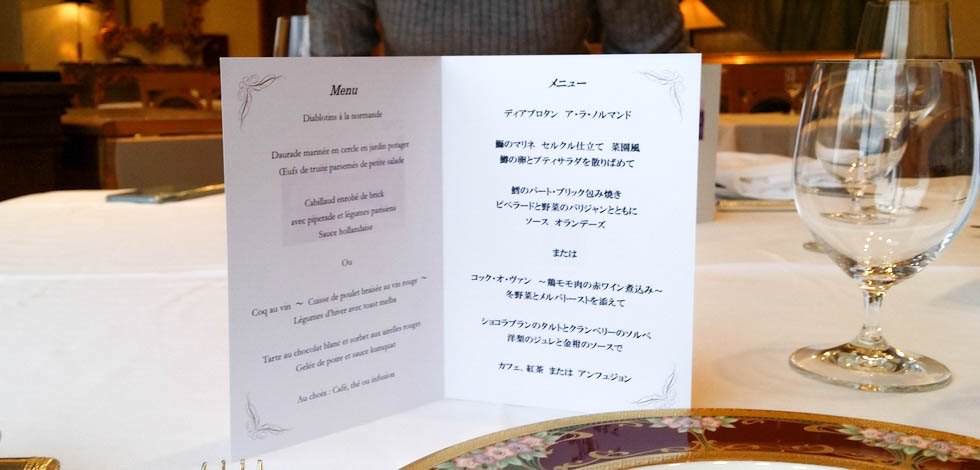 Menu
Diablotins à la normande
Daurade marinée en cercle en jardin potager
Œufs de truite parsemés de petite salade
Cabillaud enrobé de brick
avec piperade et légumes parisiens
Sauce hollandaise
Ou
Coq au vin ～ Cuisse de poulet braisée au vin rouge ～
Légumes d'hiver avec toast melba
Tarte au chocolat blanc et sorbet aux airelles rouges
Gelée de poire et sauce kumquat
Au choix : Café, thé ou infusion
メニュー
ディアブロタン ア・ラ・ノルマンド
鰤のマリネ セルクル仕立て 菜園風
鱒の卵とプティサラダを散りばめて
鱈のパート・ブリック包み焼き
ピペラードと野菜のパリジャンとともに
ソース オランデーズ
または
コック・オ・ヴァン ～鶏モモ肉の赤ワイン煮込み～
冬野菜とメルバトーストを添えて
ショコラブランのタルトとクランベリーのソルベ
洋梨のジュレと金柑のソースで
カフェ、紅茶 または アンフュジョン